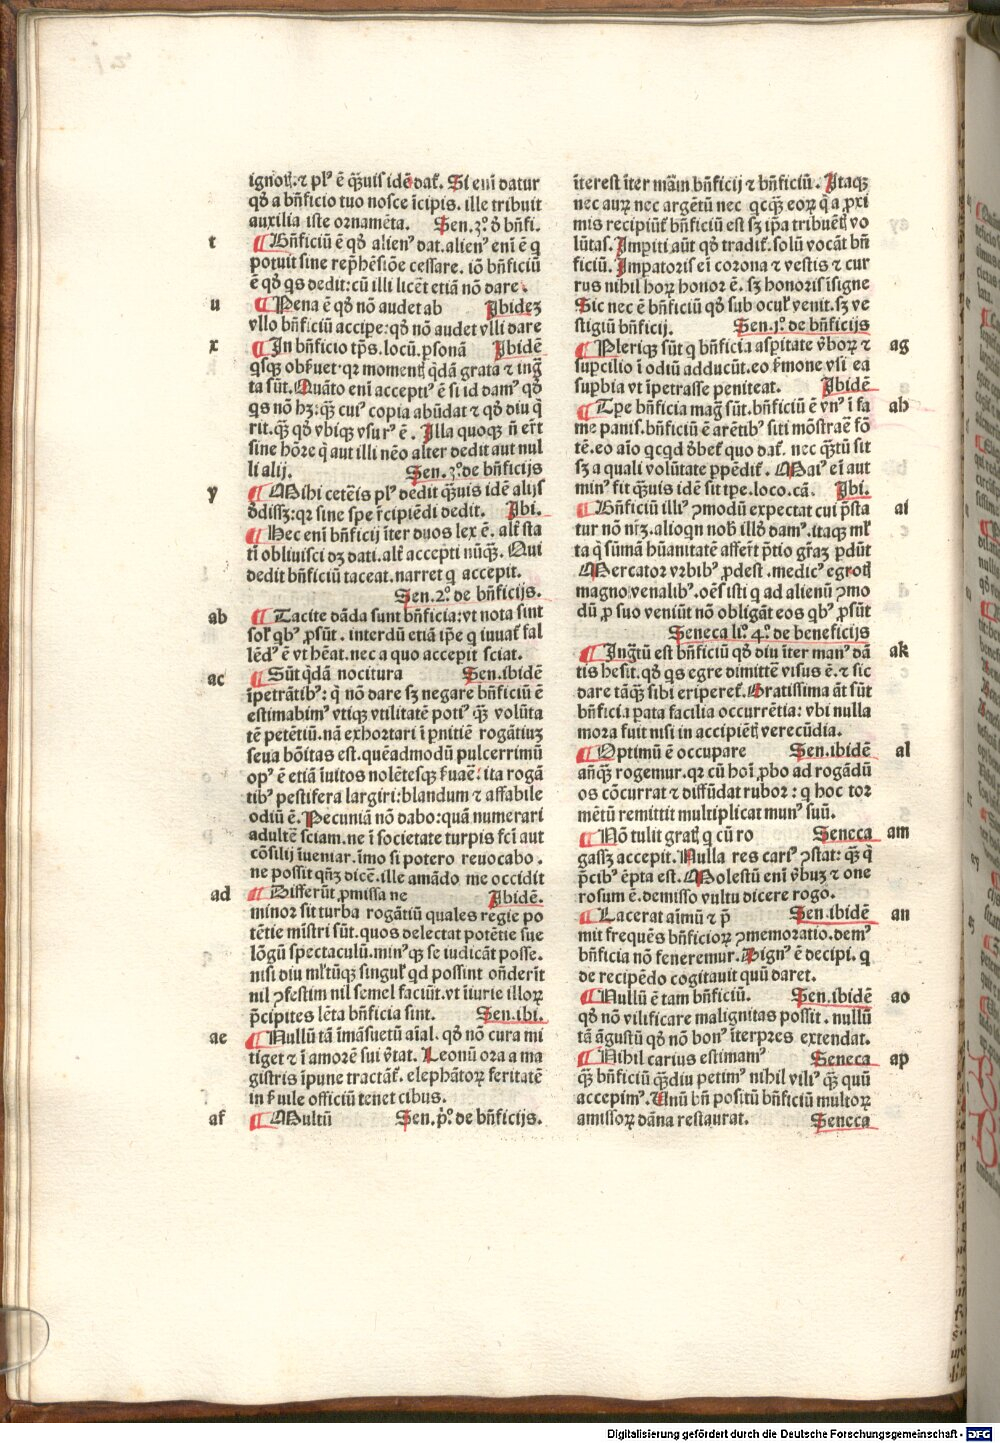 ignoꝶ.⁊ plꝰ ē q̄ꝫuis idē dat̄. Si eni datur
qđ a bn̄ficio tuo nosce īcipis. ille tribuit
auxilia iste ornamēta. Sen.3º. đ bn̄fi.
t
¶Bn̄ficiū ē qđ alienꝰ dat.alienꝰ eni ē q
potuit sine rep̄hēsiōe cessare. iō bn̄ficiū
ē qđ qs dedit:cū illi licēt etiā nō dare.
u
¶Pena ē qđ nō audet ab Ibidez
vllo bn̄ficiū accipe:qđ nō audet vlli dare
x
¶In bn̄ficio tp̄s. locū. ꝑsonā Ibidē
ta sūt. Quāto eni acceptiꝰ ē si id damꝰ qđ
qs nō hꝫ: q̄ꝫ cuiꝰ copia abūdat ⁊ qđ diu q̄
rit. q̄ꝫ qđ vbiqꝫ vsurꝰ ē. Illa quoqꝫ n̄ er̄t
sine hōre q̄ aut illi nēo alter dedit aut nul
li alij. Sen.3º.de bn̄ficijs
y
¶Mihi cetēis plꝰ dedit q̄ꝫuis idē alijs
đdissꝫ:qꝛ sine spe r̄cipiēdi dedit. Ibi.
¶Hec eni bn̄ficij īter duos lex ē. alt̄ sta
tī obliuisci dꝫ dati. alt̄ accepti nūq̄ꝫ. Qui
dedit bn̄ficiū taceat.narret q accepit.
Sen.2º.de bn̄ficijs.
ab
¶Tacite dāda sunt bn̄ficia:vt nota sint
sol̄ qbꝰ ꝓsūt. interdū etiā ip̄e q iuuat̄ fal
lēdꝰ ē vt hēat.nec a quo accepit sciat.
ac
¶Sūt q̄dā nocitura Sen.ibidē
īpetrātibꝰ: q̄ nō dare sꝫ negare bn̄ficiū ē
estimabimꝰ vtiqꝫ vtilitatē potiꝰ q̄ꝫ volūta
tē petētiū.nā exhortari ī ꝑnitiē rogātiuꝫ
seua bōitas est.quēadmodū pulcerrimū
opꝰ ē etiā īuitos nolētesqꝫ ẜuaē:ita rogā
tibꝰ pestifera largiri:blandum ⁊ affabile
odiū ē. Pecuniā nō dabo:quā numerari
adultē sciam.ne ī societate turpis fc̄i aut
cōsilij īueniar.īmo si potero reuocabo.
ne possit qn̄ꝫ dicē.ille amādo me occidit
ad
¶Differūt ꝓmissa ne Ibidē.
minor sit turba rogātiū quales regie po
tētie mīstri sūt.quos delectat potētie sue
lōgū spectaculū.minꝰqꝫ se iudicāt posse.
nisi diu ml̄tūqꝫ singul̄ qd possint on̄derīt
nil ꝯfestim nil semel faciūt.vt īiurie illoꝝ
p̄cipites lēta bn̄ficia sunt. Sen.ibi.
ae
¶Nullū tā īmāsuetū aīal. qđ nō cura mi
tiget ⁊ ī amorē sui v̄tat. Leonū ora a ma
gistris īpune tractāt̄. elephātoꝝ feritatē
in ẜuile officiū tenet cibus.
af
¶Multū Sen.p̄º.de bn̄ficijs.
īterest īter mām bn̄ficij ⁊ bn̄ficiū. Itaqꝫ
nec auꝝ nec argētū nec qcq̄ꝫ eoꝝ q̄ a ꝓxi
mis recipiūt̄ bn̄ficiū est sꝫ ip̄a tribuētꝭ vo
lūtas. Imꝑiti aūt qđ tradit̄. solū vocāt bn̄
ficiū. Imꝑatoris ei corona ⁊ vestis ⁊ cur
rus nihil hoꝝ honor ē. sꝫ honoris īsigne
Sic nec ē bn̄ficiū qđ sub ocul̄ venit.sꝫ ve
stigiū bn̄ficij. Sen.1º.de bn̄ficijs
ag
¶Pleriqꝫ sūt q bn̄ficia aspitate v̄boꝝ ⁊
suꝑcilio ī odiū adducūt.eo ẜmone vsi ea
suꝑbia vt īpetrasse peniteat. Ibidē
ah
¶Tꝑe bn̄ficia maḡ sūt.bn̄ficiū ē vnꝰ ī fa
me panis.bn̄ficiū ē arētibꝰ siti mōstrae fō
tē.eo aīo qcqd đbet̄ quo dat̄. nec q̄ꝫtū sit
sꝫ a quali volūtate ꝓpēdit̄. Maiꝰ ei aut
minꝰ fit q̄ꝫuis idē sit tꝑe.loco.cā. Ibi.
ai
¶Bn̄ficiū illiꝰ ꝯmodū expectat cui p̄sta
tur nō nr̄ꝫ.alioqn nob̄ illđ damꝰ.itaqꝫ ml̄
ta q̄ sūmā hūanitatē affer̄t p̄tio gr̄aꝫ ꝑdūt
Mercator vrbibꝰ ꝓdest.medicꝰ egrotꝭ
mago venalibꝰ.oēs isti q ad alienū ꝯmo
dū ꝓ suo veniūt nō obligāt eos qbꝰ ꝓsūt
Seneca li.º 4º.de beneficijs
ak
¶Ingr̄tū est bn̄ficiū qđ diu īter manꝰ dā
tis hesit.qđ qs egre dimittē visus ē.⁊ sic
dare tāq̄ꝫ sibi eriperet̄. Gratissima āt sūt
bn̄ficia ꝑata facilia occurrētia: vbi nulla
mora fuit nisi in accipiētꝭ verecūdia.
al
¶Optimū ē occupare Sen.ibidē
añq̄ꝫ rogemur.qꝛ cū hoī ꝓbo ad rogādū
os cōcurrat ⁊ diffūdat rubor: q hoc tor
mētū remittit multiplicat munꝰ suū.
am
¶Nō tulit gratꝭ q cū ro Seneca
gassꝫ accepit. Nulla res cariꝰ ꝯstat: q̄ꝫ q̄
p̄cibꝰ ēpta est. Molestū eni v̄buꝫ ⁊ one
rosum ē.demisso vultu dicere rogo.
an
¶Lacerat aīmū ⁊ p̄ Sen.ibidē
mit frequēs bn̄ficioꝝ ꝯmemoratio.demꝰ
bn̄ficia nō feneremur.Dignꝰ ē decipi. q
de recipēdo cogitauit quū daret.
ao
¶Nullū ē tam bn̄ficiū. Sen.ibidē
qđ nō vilificare malignitas possit. nullū
tā āgustū qđ nō bonꝰ īterpres extendat.
ap
¶Nihil carius estimamꝰ Seneca
q̄ꝫ bn̄ficiū q̄ꝫdiu petimꝰ nihil viliꝰ q̄ꝫ quū
accepimꝰ. Unū bn̄ positū bn̄ficiū multoꝝ
amissoꝝ dāna restaurat. Seneca
Digitalisierung gefördert durch die Deutsche Forschungsgemeinschaft - DFG